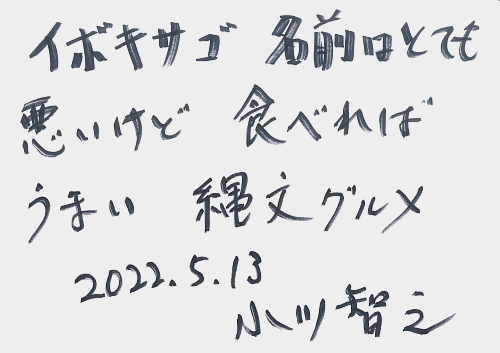 イボキサゴ 名前はとても
悪いけど 食べれば
うまい 縄文グルメ
2022.5.13
小川智之